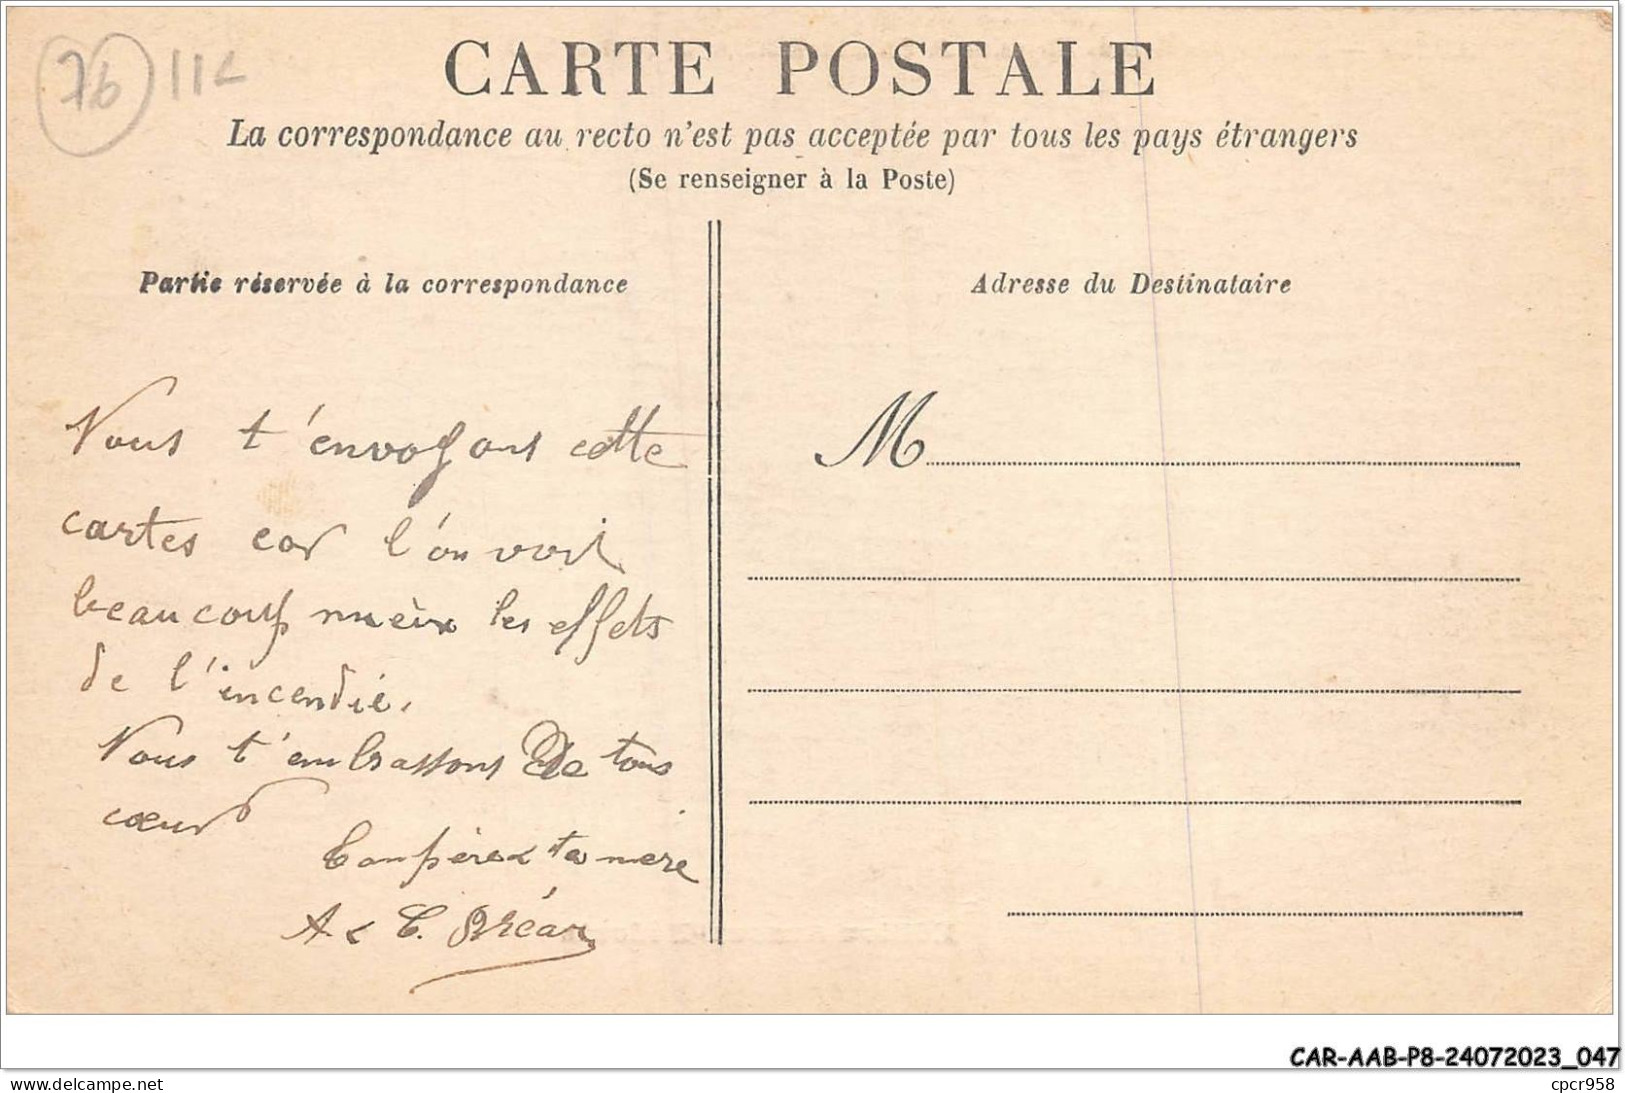 76 11L
CARTE POSTALE
La correspondance au recto n'est pas acceptée par tous les pays étrangers
(Se renseigner à la Poste)
Partie réservée à la correspondance
Adresse du Destinataire
M
Nous t'envoyons cette
cartes car l'on voit
beaucoup mieix les effets
de l'incendié.
Nous t'embrassons De tous
cœur
Ton père & ta mère
A & C. Bréar
CAR-AAB-P8-24072023_047
www.delcampe.net
cpcr958